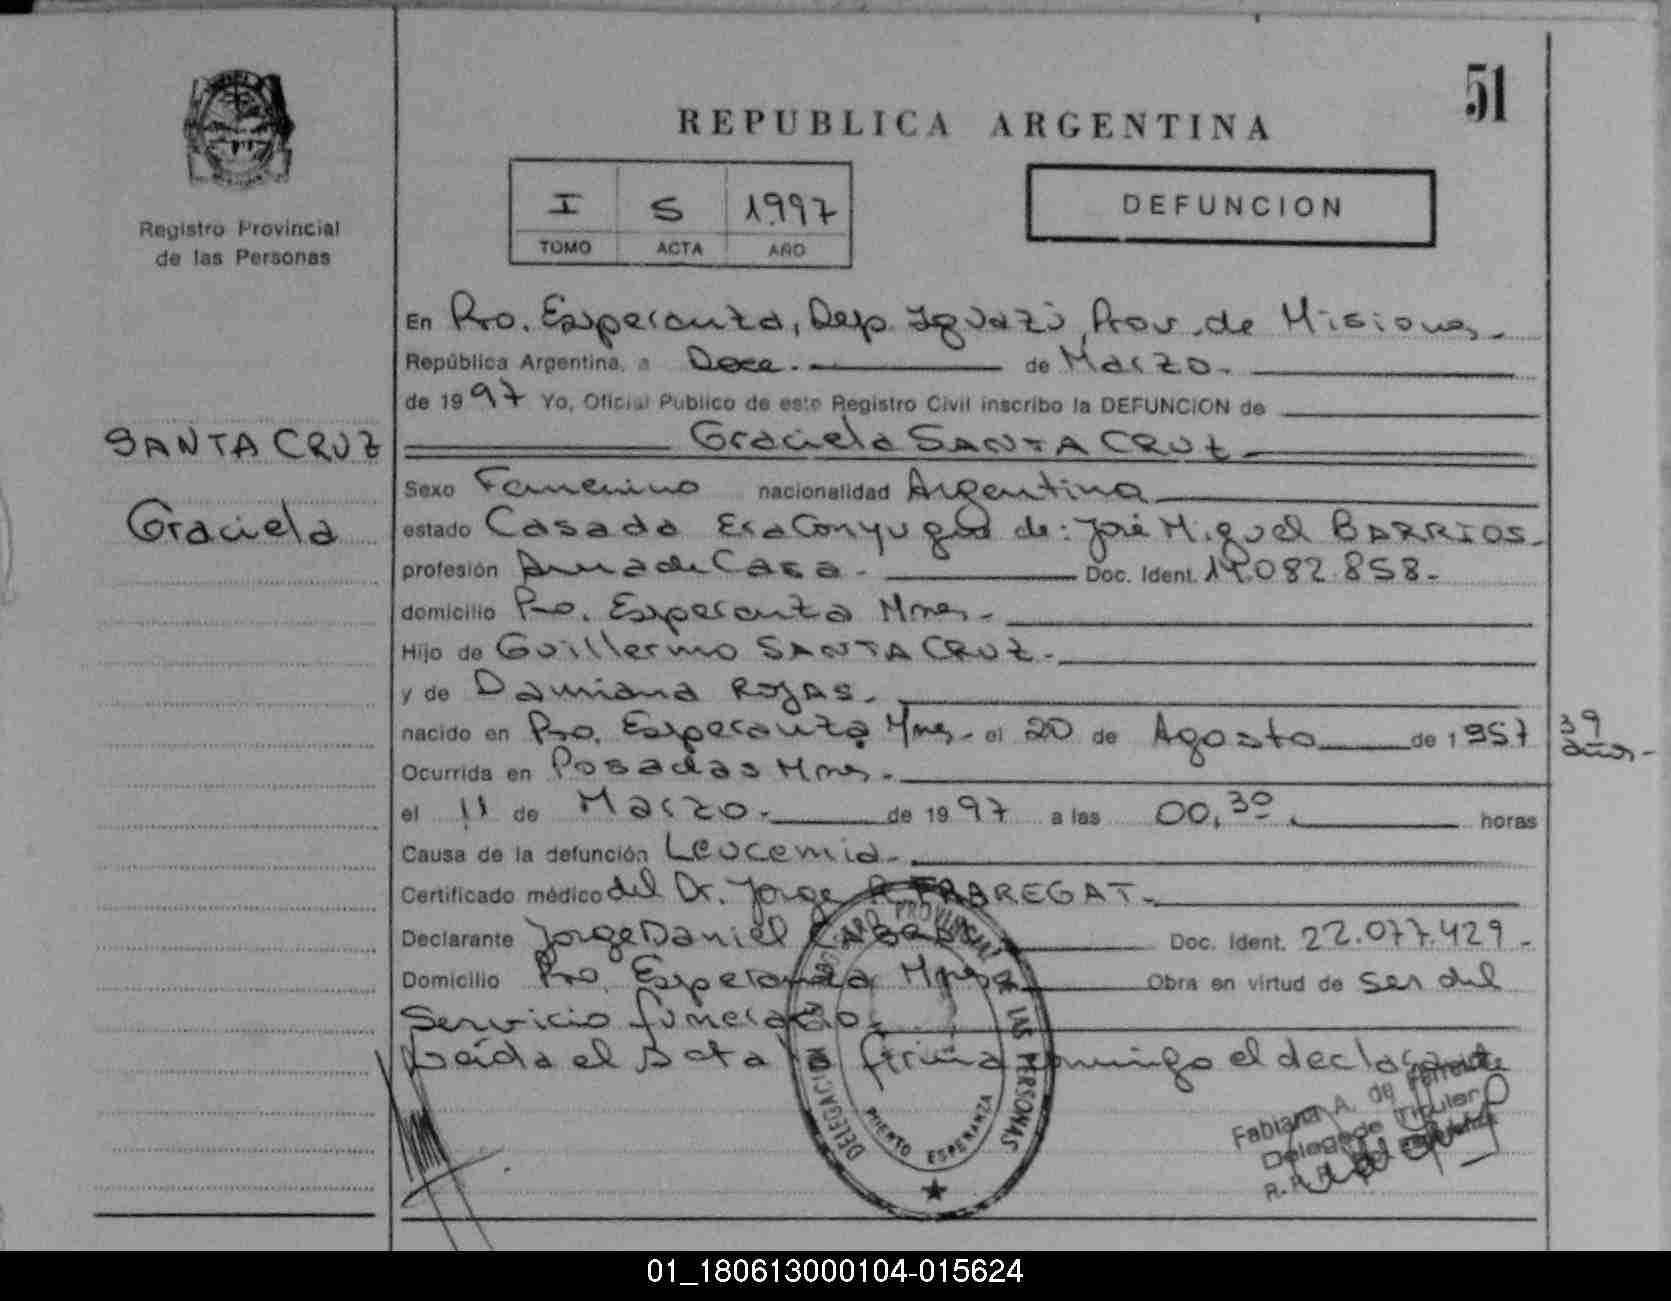 51
REPUBLICA ARGENTINA
I 5 1997
TOMO ACTA AÑO
DEFUNCION
Registro Provincial
de las Personas
SANTA CRUZ
Graciela
En Pto. Esperanza, Dep. Iguazú, Prov. de Misiones.
República Argentina, a Doce. de Marzo.
de 1997 Yo, Oficial Publico de este Registro Civil inscribo la DEFUNCION de
Graciela SANTA CRUZ.
Sexo Femenino nacionalidad Argentina
estado Casada Era Conyuge de: José Miguel BARRIOS.
profesión Ama de Casa. Doc. Ident. .082.858.
domicilio Pto. Esperanza Mnes.
Hijo de Guillermo SANTA CRUZ.
y de Damiana ROJAS.
nacido en Pto. Esperanza Mnes. el 20 de Agosto de 1957 39
años.
Ocurrida en Posadas Mnes.
el 11 de Marzo. de 1997 a las 00,30 horas
Causa de la defunción Leucemia.
Certificado médico del Dr. Jorge FABREGAT.
Declarante Jorge Daniel Doc. Ident. 22.077.429.
Domicilio Pto. Esperanza Mnes Obra en virtud de ser del
Servicio funerario.
Leída el Acta la firma conmigo el declarante
REGISTRO PROVINCIAL DE LAS PERSONAS
DELEGACION
PUERTO ESPERANZA
Fabiana A. de Ferreira
Delegada Titular
R. P. P.
01_180613000104-015624